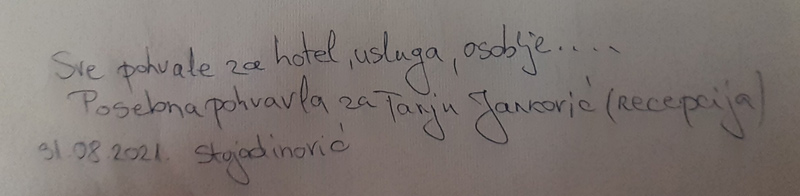 Sve pohvale za hotel, usluga, osoblje.....
Posebna pohvavla za Tanju Janković (Recepcija)
31.08.2021. Stojadinović